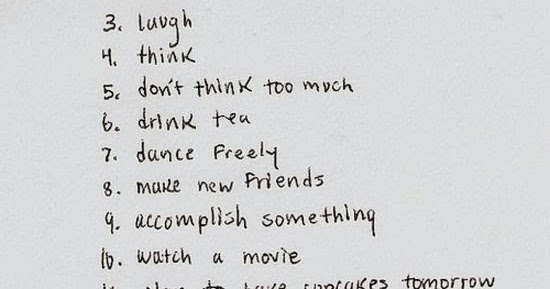 3. laugh
4. think
5. don't think too much
6. drink tea
7. dance freely
8. make new friends
9. accomplish something
10. watch a movie
to have cupcakes tomorrow